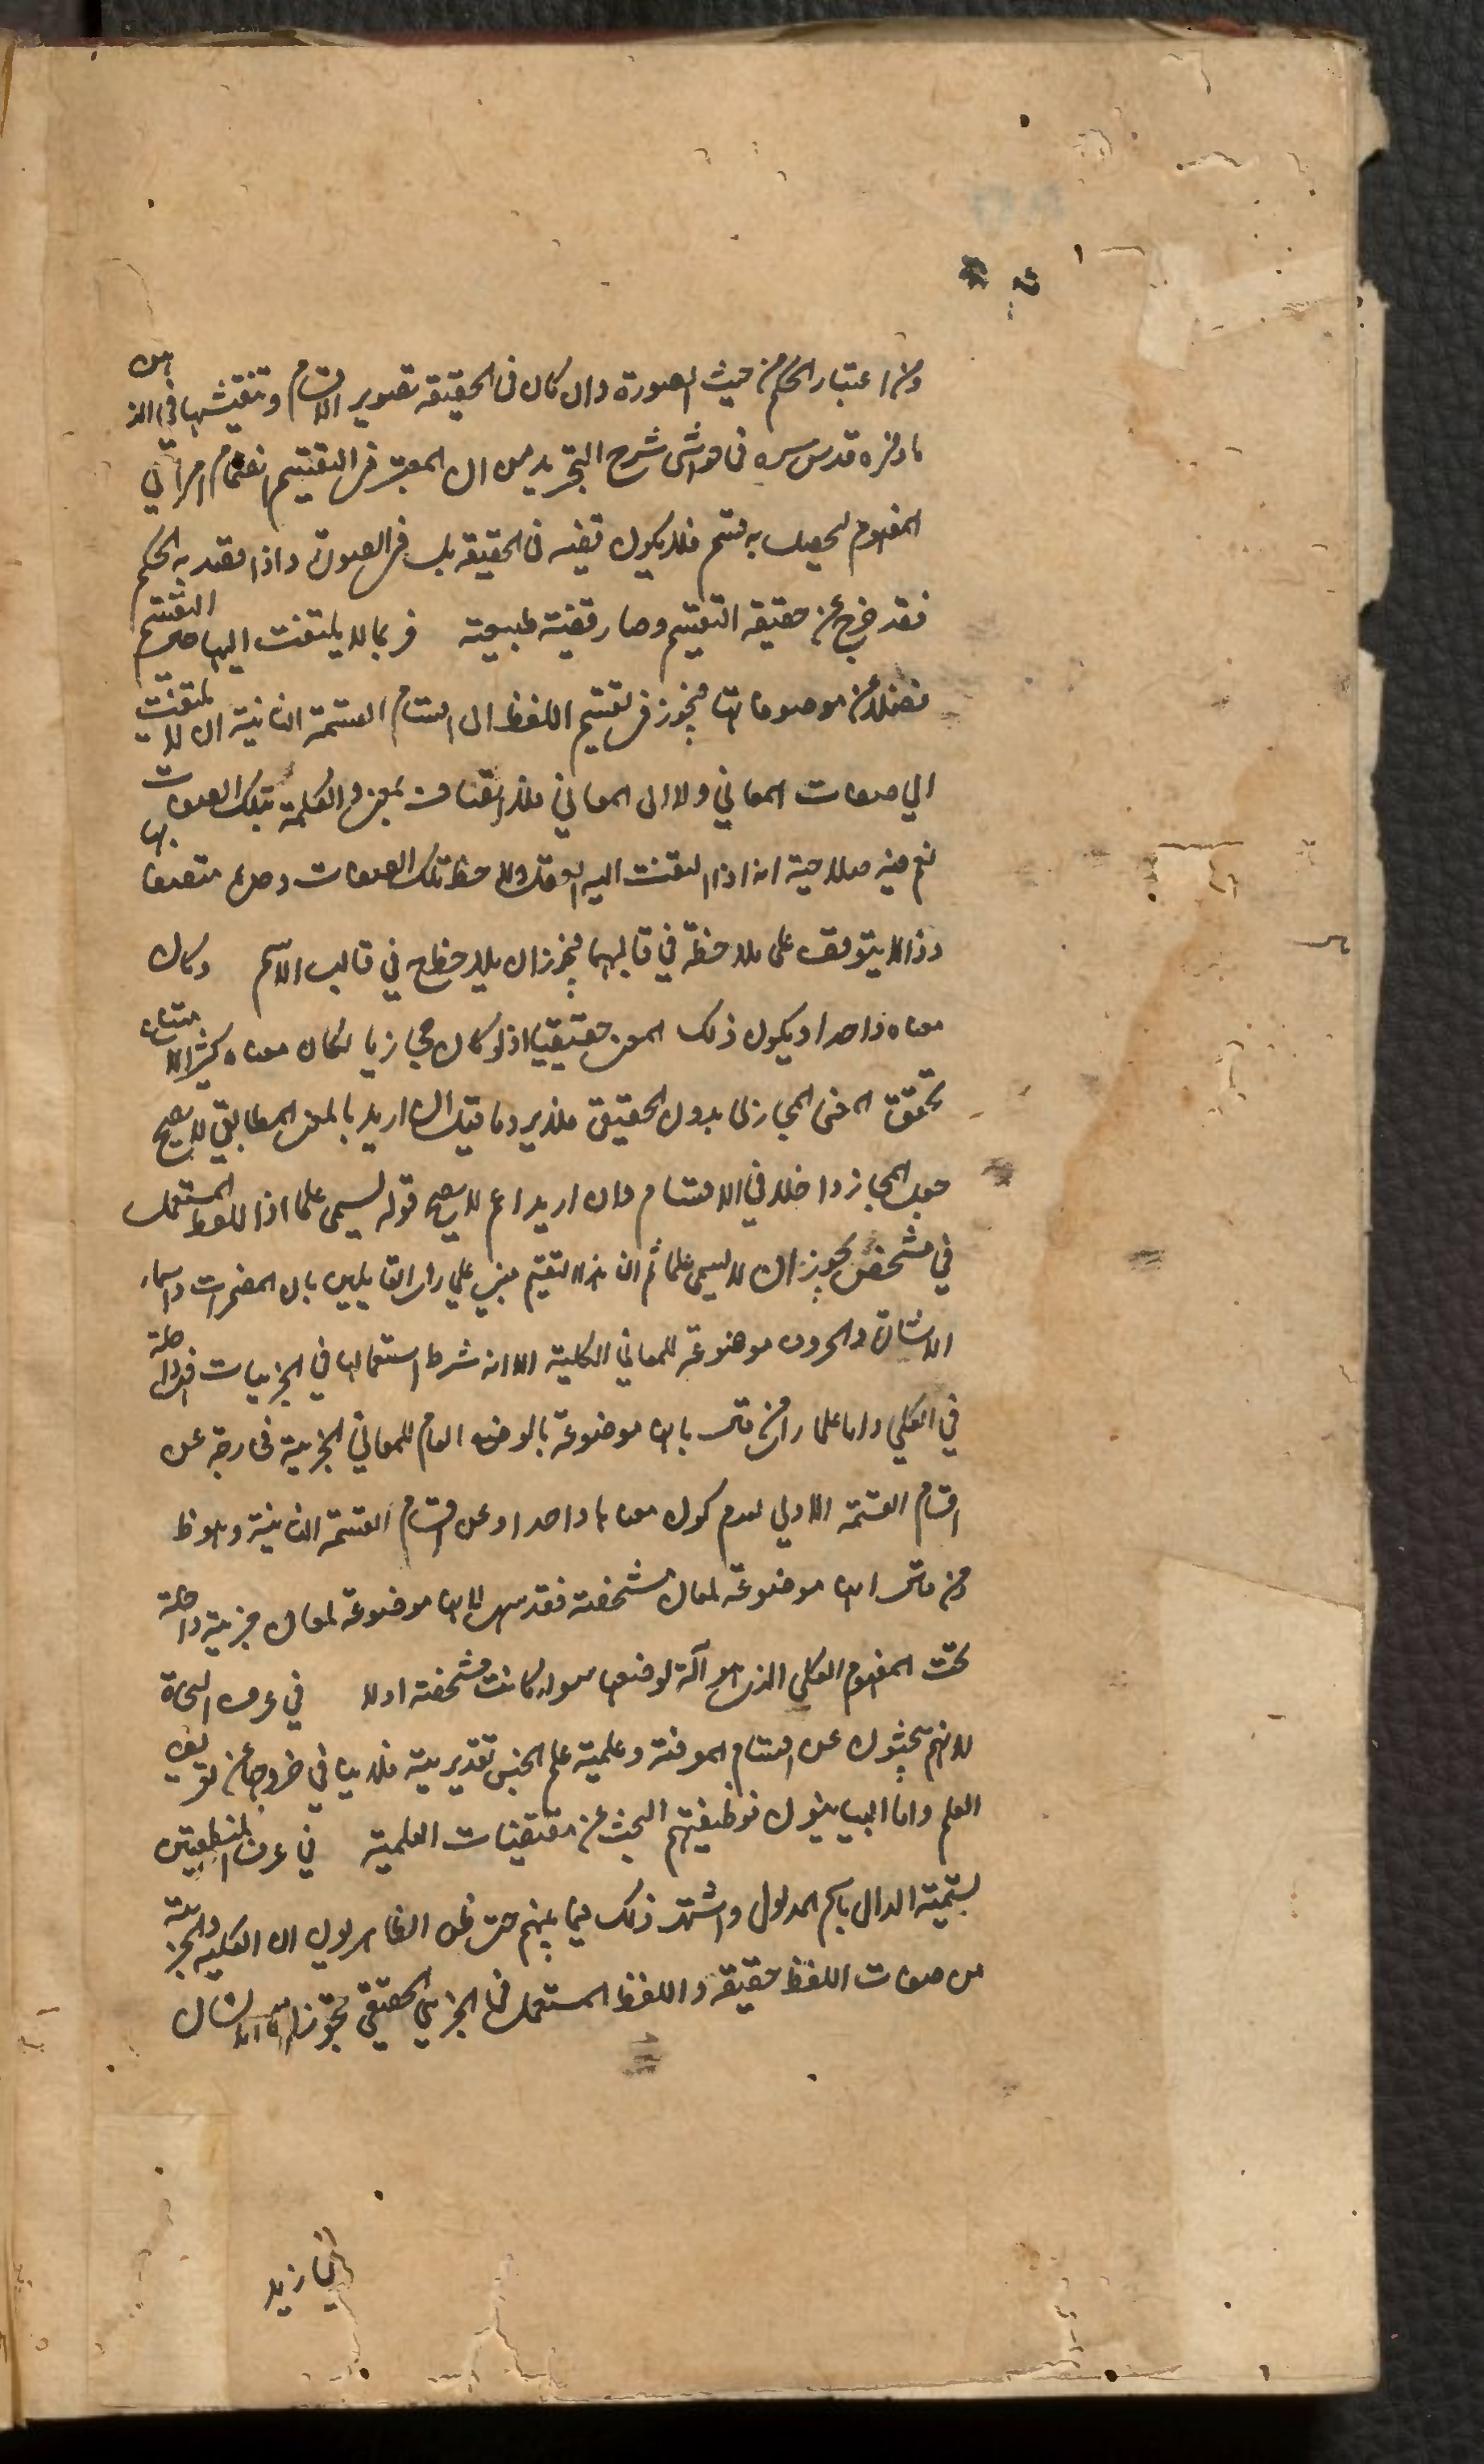 ومن اعتبار الحكم من حيث الصورة وان كان فى الحقيقة تصوير الاقسام وتفتيشها فى الذهن
ما ذكره قدس سره فى حواشى شرح التجريد من ان المعتبر فى التقسيم انضمام امر الى
المفهوم ليحصل به قسم فلا يكون قضية فى الحقيقة بل فى الصورة واذا قصد به الحكم
فقد خرج عن حقيقة التقسيم وصار قضية طبيعية فربما لا يلتفت اليها حين التقسيم
فضلا عن موصوفاتها فيجوز فى تقسيم اللفظ الى اقسام القسمة الثانية ان لا يلتفت
الى صفات المعاني ولا الى المعاني فلا اتصاف لمعنى الكلمة بتلك الصفات
نعم فيه صلاحية انه اذا التفت اليه العقل ولاحظ تلك الصفات وجده متصفا بها
وذا لا يتوقف على ملاحظة في قالبهما فيجوز ان يلاحظ في قالب الاسم وكان
معناه واحدا ويكون ذلك المعنى حقيقيا اذ لو كان مجازيا لكان معناه كثيرا لامتناع
تحقق المعنى المجازى بدون الحقيقى فلا يرد ما قيل ان اريد بالمعنى المطابقي لا يصح
جعل المجاز داخلا في الاقسام وان اريد اعم لا يصح قوله يسمى علما اذ اللفظ المستعمل
في مشخص يجوز ان لا يسمى علما ثم ان هذا التقسيم مبني علي راى القايلين بان المضمرات واسماء
الاشارة والحروف موضوعة للمعاني الكلية الا انه شرط استعمالها في الجزييات فهى داخلة
في الكلي واما على راى من قال بانها موضوعة بالوضع العام للمعاني الجزئية فخارجة عن
اقسام القسمة الاولي لعدم كون معناها واحدا وعن اقسام القسمة الثانية وهو ظ
ومن قال انها موضوعة لمعان مشخصة فقد سها لانها موضوعة لمعان جزئية داخلة
تحت المفهوم الكلي الذى هو آلة لوضعها سواء كانت مشخصة اولا في عرف النحاة
لانهم يبحثون عن اقسام المعرفة وعلمية علم الجنس تقديرية فلا ينافي خروجها عن تعريف
العلم واما البيانيون فوظيفتهم البحث عن مقتضيات العلمية في عرف المنطقيين
تسمية الدال باسم المدلول واشتهر ذلك فيما بينهم حتى ظن الظاهريون ان الكلية والجزئية
من صفات اللفظ حقيقة واللفظ المستعمل فى الجزئي الحقيقي تجوزا